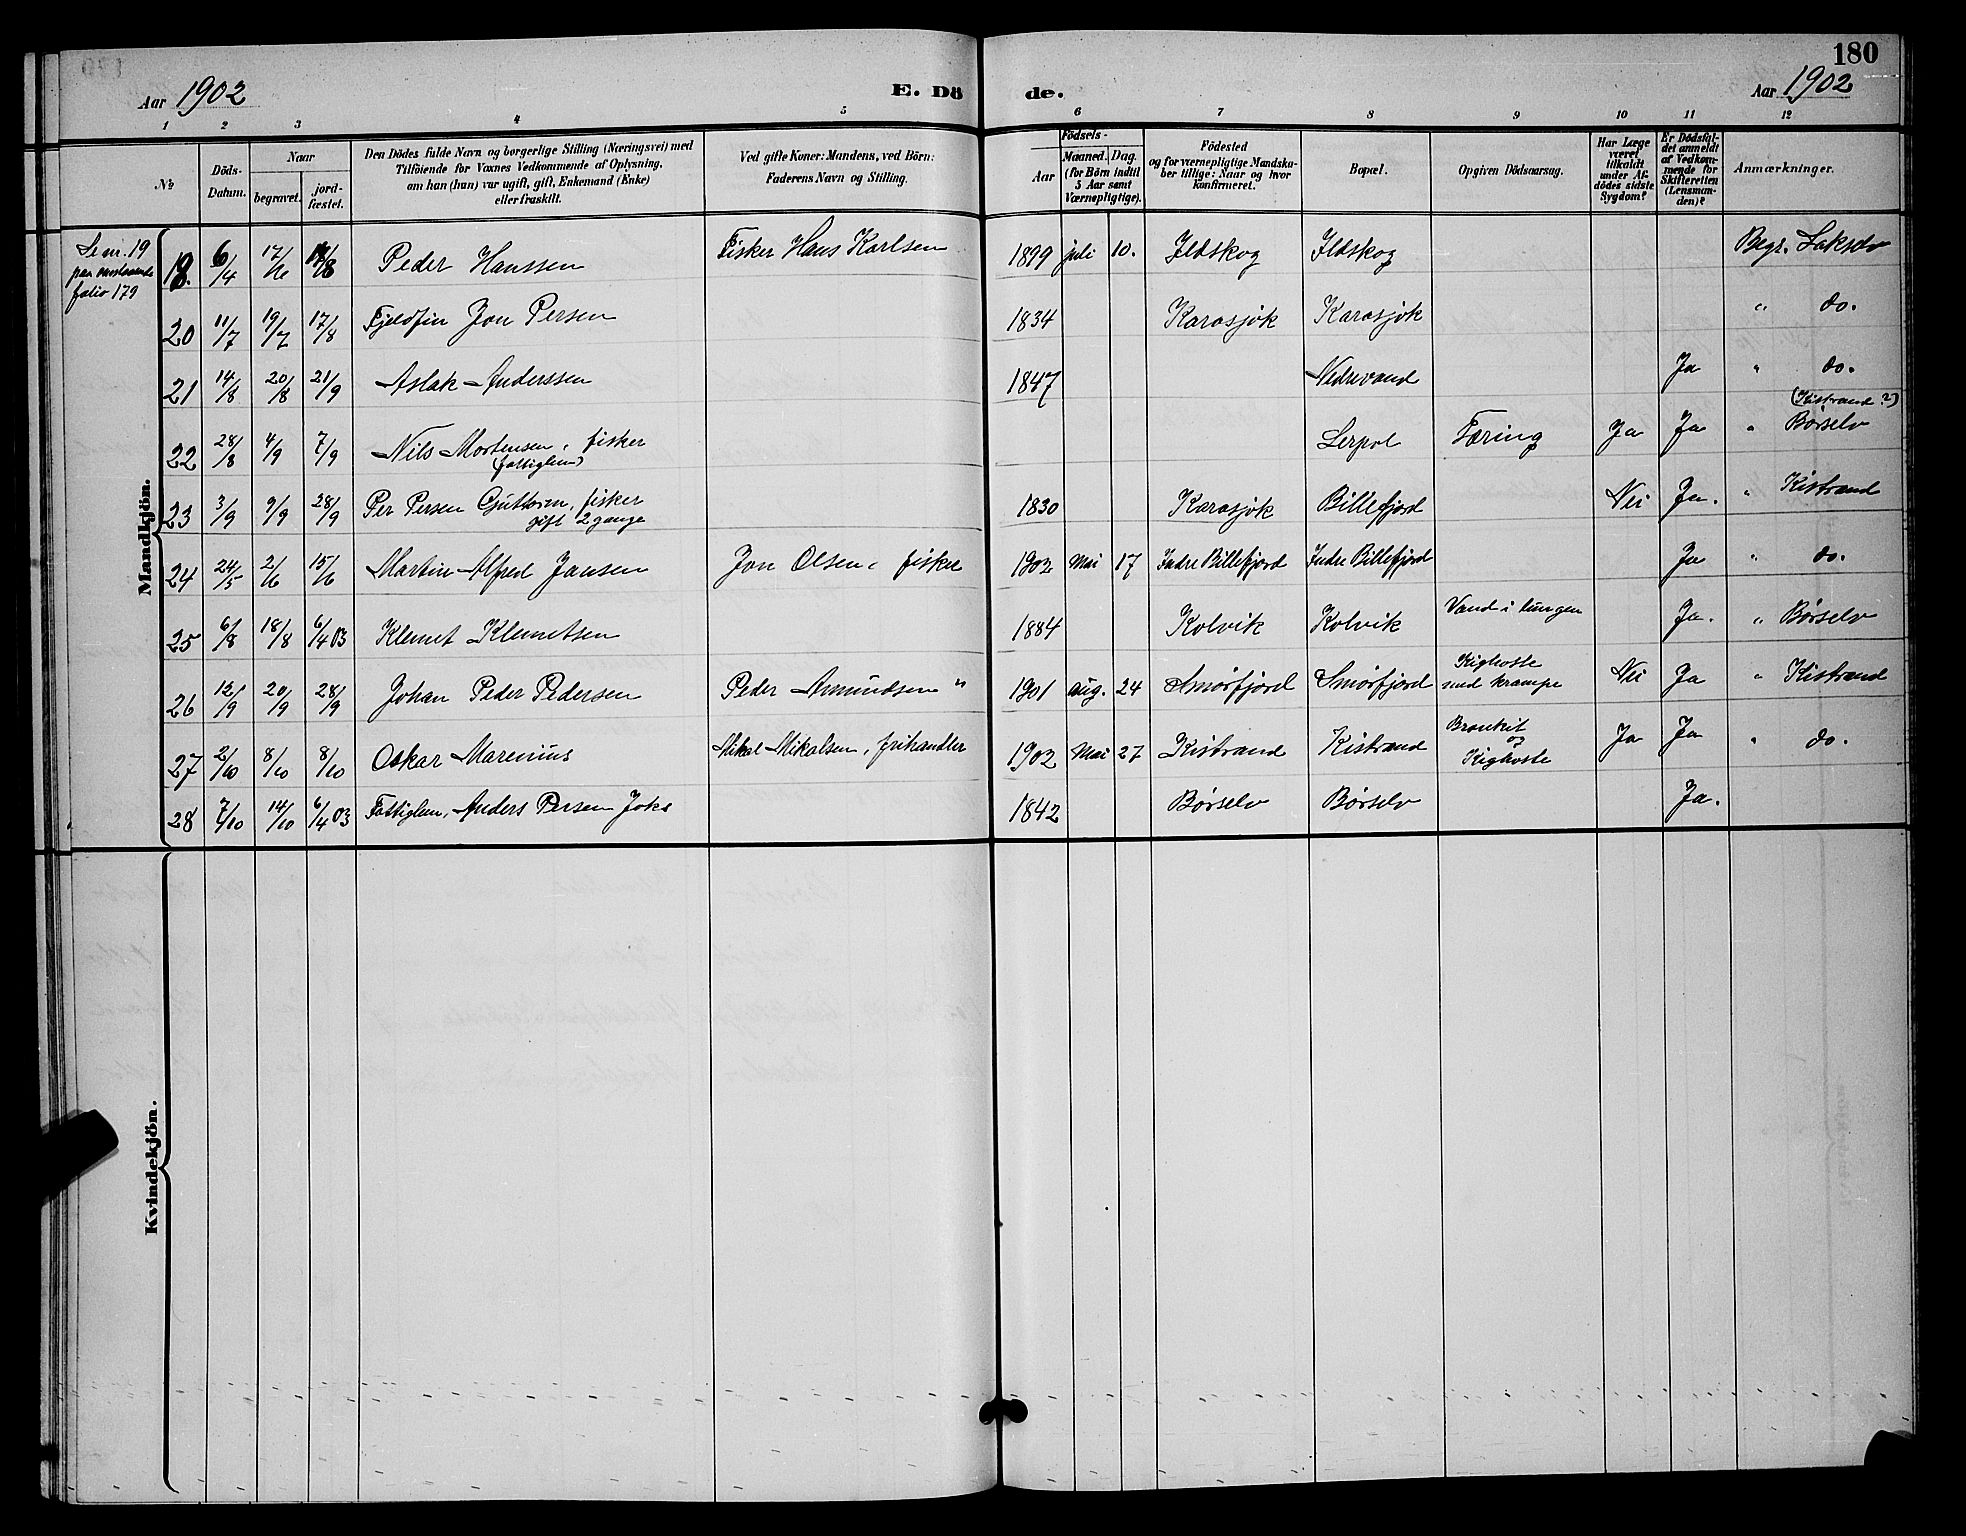 180
Aar 1902
E. Dö de.
Aar 1902
1 2 3 4 5 6 7 8 9 10 11 12
№
Döds-
Datum.
Naar
begravet.
jord-
fæstet.
Den Dödes fulde Navn og borgerlige Stilling (Næringsvei) med
Tilföiende for Voxnes Vedkommende af Oplysning,
om han (hun) var ugift, gift, Enkemand (Enke)
eller fraskilt.
Ved gifte Koner: Mandens, ved Börn:
Faderens Navn og Stilling.
Födsels-
Aar
Maaned. Dag.
(for Börn indtil
5 Aar samt
Værnepligtige).
Födested
og for værnepligtige Mandska-
ber tillige: Naar og hvor
konfirmeret.
Bopæl.
Opgiven Dödsaarsag.
Har Læge
været
tilkaldt
under Af-
dödes sidste
Sygdom?
Er Dödsfal-
det anmeldt
af Vedkom-
mende for
Skifteretten
(Lensman-
den)?
Anmærkninger.
Se nr. 19
paa
folio 179
Mandkjön.
18. 6/4 17/6 17/8 Peder Hanssen Fisker Hans Karlsen 1899 juli 10. Ildskog Ildskog Begr. Lakselv
20 11/7 19/7 17/8 Fjeldfin Jon Persen 1834 Karasjok Karasjok " do.
21 14/8 20/8 21/9 Aslak Anderssen 1847 Nedrevand Ja " do.
(Kistrand?)
22 28/8 4/9 7/9 Nils Mortensen, fisker Lerpol Tæring Ja Ja " Børselv
(fattiglem)
23 3/9 9/9 28/9 Per Persen Guttorm, fisker 1830 Karasjok Billefjord Nei Ja. " Kistrand
gift 2 gange
24 24/5 2/6 15/6 Martin Alfred Jansen Jon Olsen, fisker 1902 Mai 17 Indre Billefjord Indre Billefjord Ja " do.
25 6/8 18/8 6/4 03 Klemet Klemetsen 1884 Kolvik Kolvik Vand i lungen Ja. " Børselv
26 12/9 20/9 28/9 Johan Peder Pedersen Peder Amundsen " 1901 aug. 24 Smørfjord Smørfjord Kighoste
med krampe Nei Ja " Kistrand
27 2/10 8/10 8/10 Oskar Marenius Mikal Mikalsen, frihandler 1902 Mai 27 Kistrand Kistrand Bronkit
og
Kighoste Ja Ja " do.
28 7/10 14/10 6/4 03 Fattiglem, Anders Persen Joks 1842 Børselv Børselv Ja.
Kvindekjön.